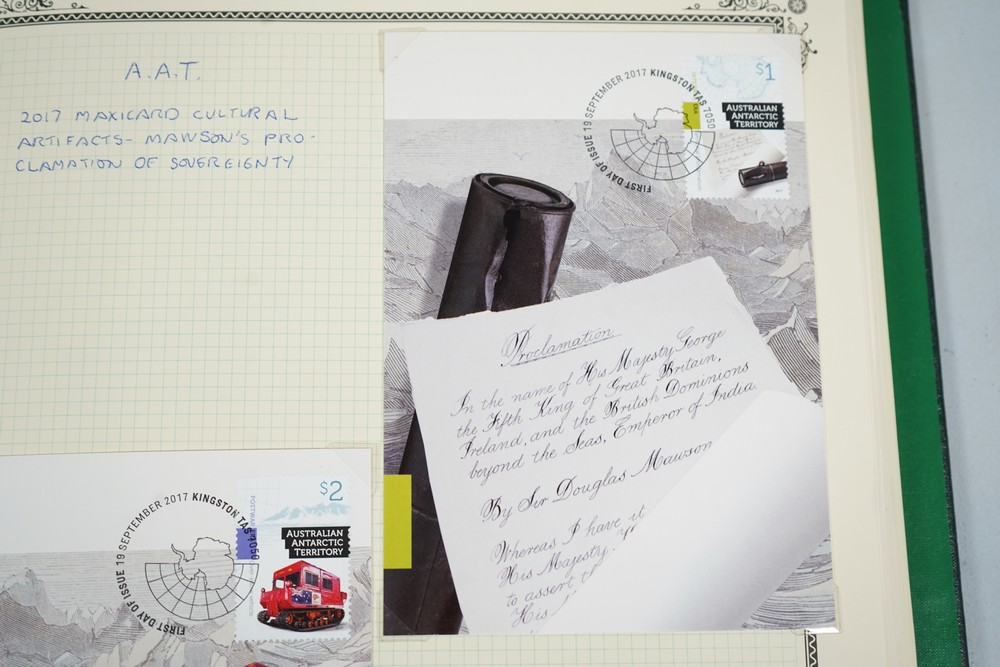 A.A.T.
2017 MAXICARD CULTURAL
ARTIFACTS- MAWSON'S PRO-
CLAMATION OF SOVEREIGNTY
FIRST DAY OF ISSUE 19 SEPTEMBER 2017 KINGSTON TAS 7050
$1
AUSTRALIAN
ANTARCTIC
TERRITORY
Proclamation
In the name of His Majesty George
the Fifth King of Great Britain,
Ireland, and the British Dominions
beyond the Seas, Emperor of India
By Sir Douglas Mawson
Whereas I have it
His Majesty
to assert
His
FIRST DAY OF ISSUE 19 SEPTEMBER 2017 KINGSTON TAS 7050
$2
AUSTRALIAN
ANTARCTIC
TERRITORY